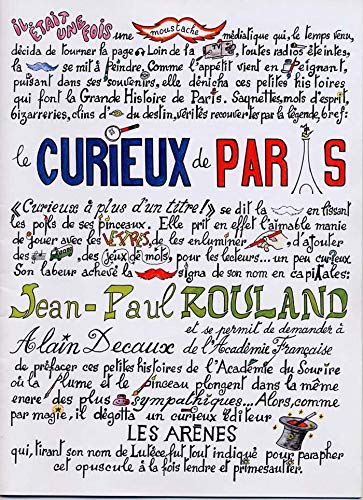 il ÉTAIT UNE FOIS une moustache médiatique qui, le temps venu,
décida de tourner la page. Loin de la toutes radios éteintes,
la se mit à peindre. Comme l'appétit vient en Peignant,
puisant dans ses souvenirs, elle dénicha ces petites histoires
qui font la Grande Histoire de Paris. Saynettes, mots d'esprit,
bizarreries, clins d' du destin, vérités recouvertes par la légende, bref:
le CURIEUX de PARIS
« Curieuse à plus d'un titre!» se dit la en tissant
les poils de ses pinceaux. Elle prit en effet l'aimable manie
de jouer avec les de les enluminer d'ajouter
des des jeux de mots, pour les lecteurs... un peu curieux.
Son labeur achevé la signa de son nom en capitales:
Jean-Paul ROULAND
et se permit de demander à
Alain Decaux de l'Académie Française
de préfacer ces petites histoires de l'Académie du Sourire
où la plume et le pinceau plongent dans la même
encre des plus sympathiques... Alors, comme
par magie, il dégotta un curieux éditeur
LES ARÈNES
qui, tirant son nom de Lutèce, fut tout indiqué pour parapher
cet opuscule à la fois tendre et primesautier.